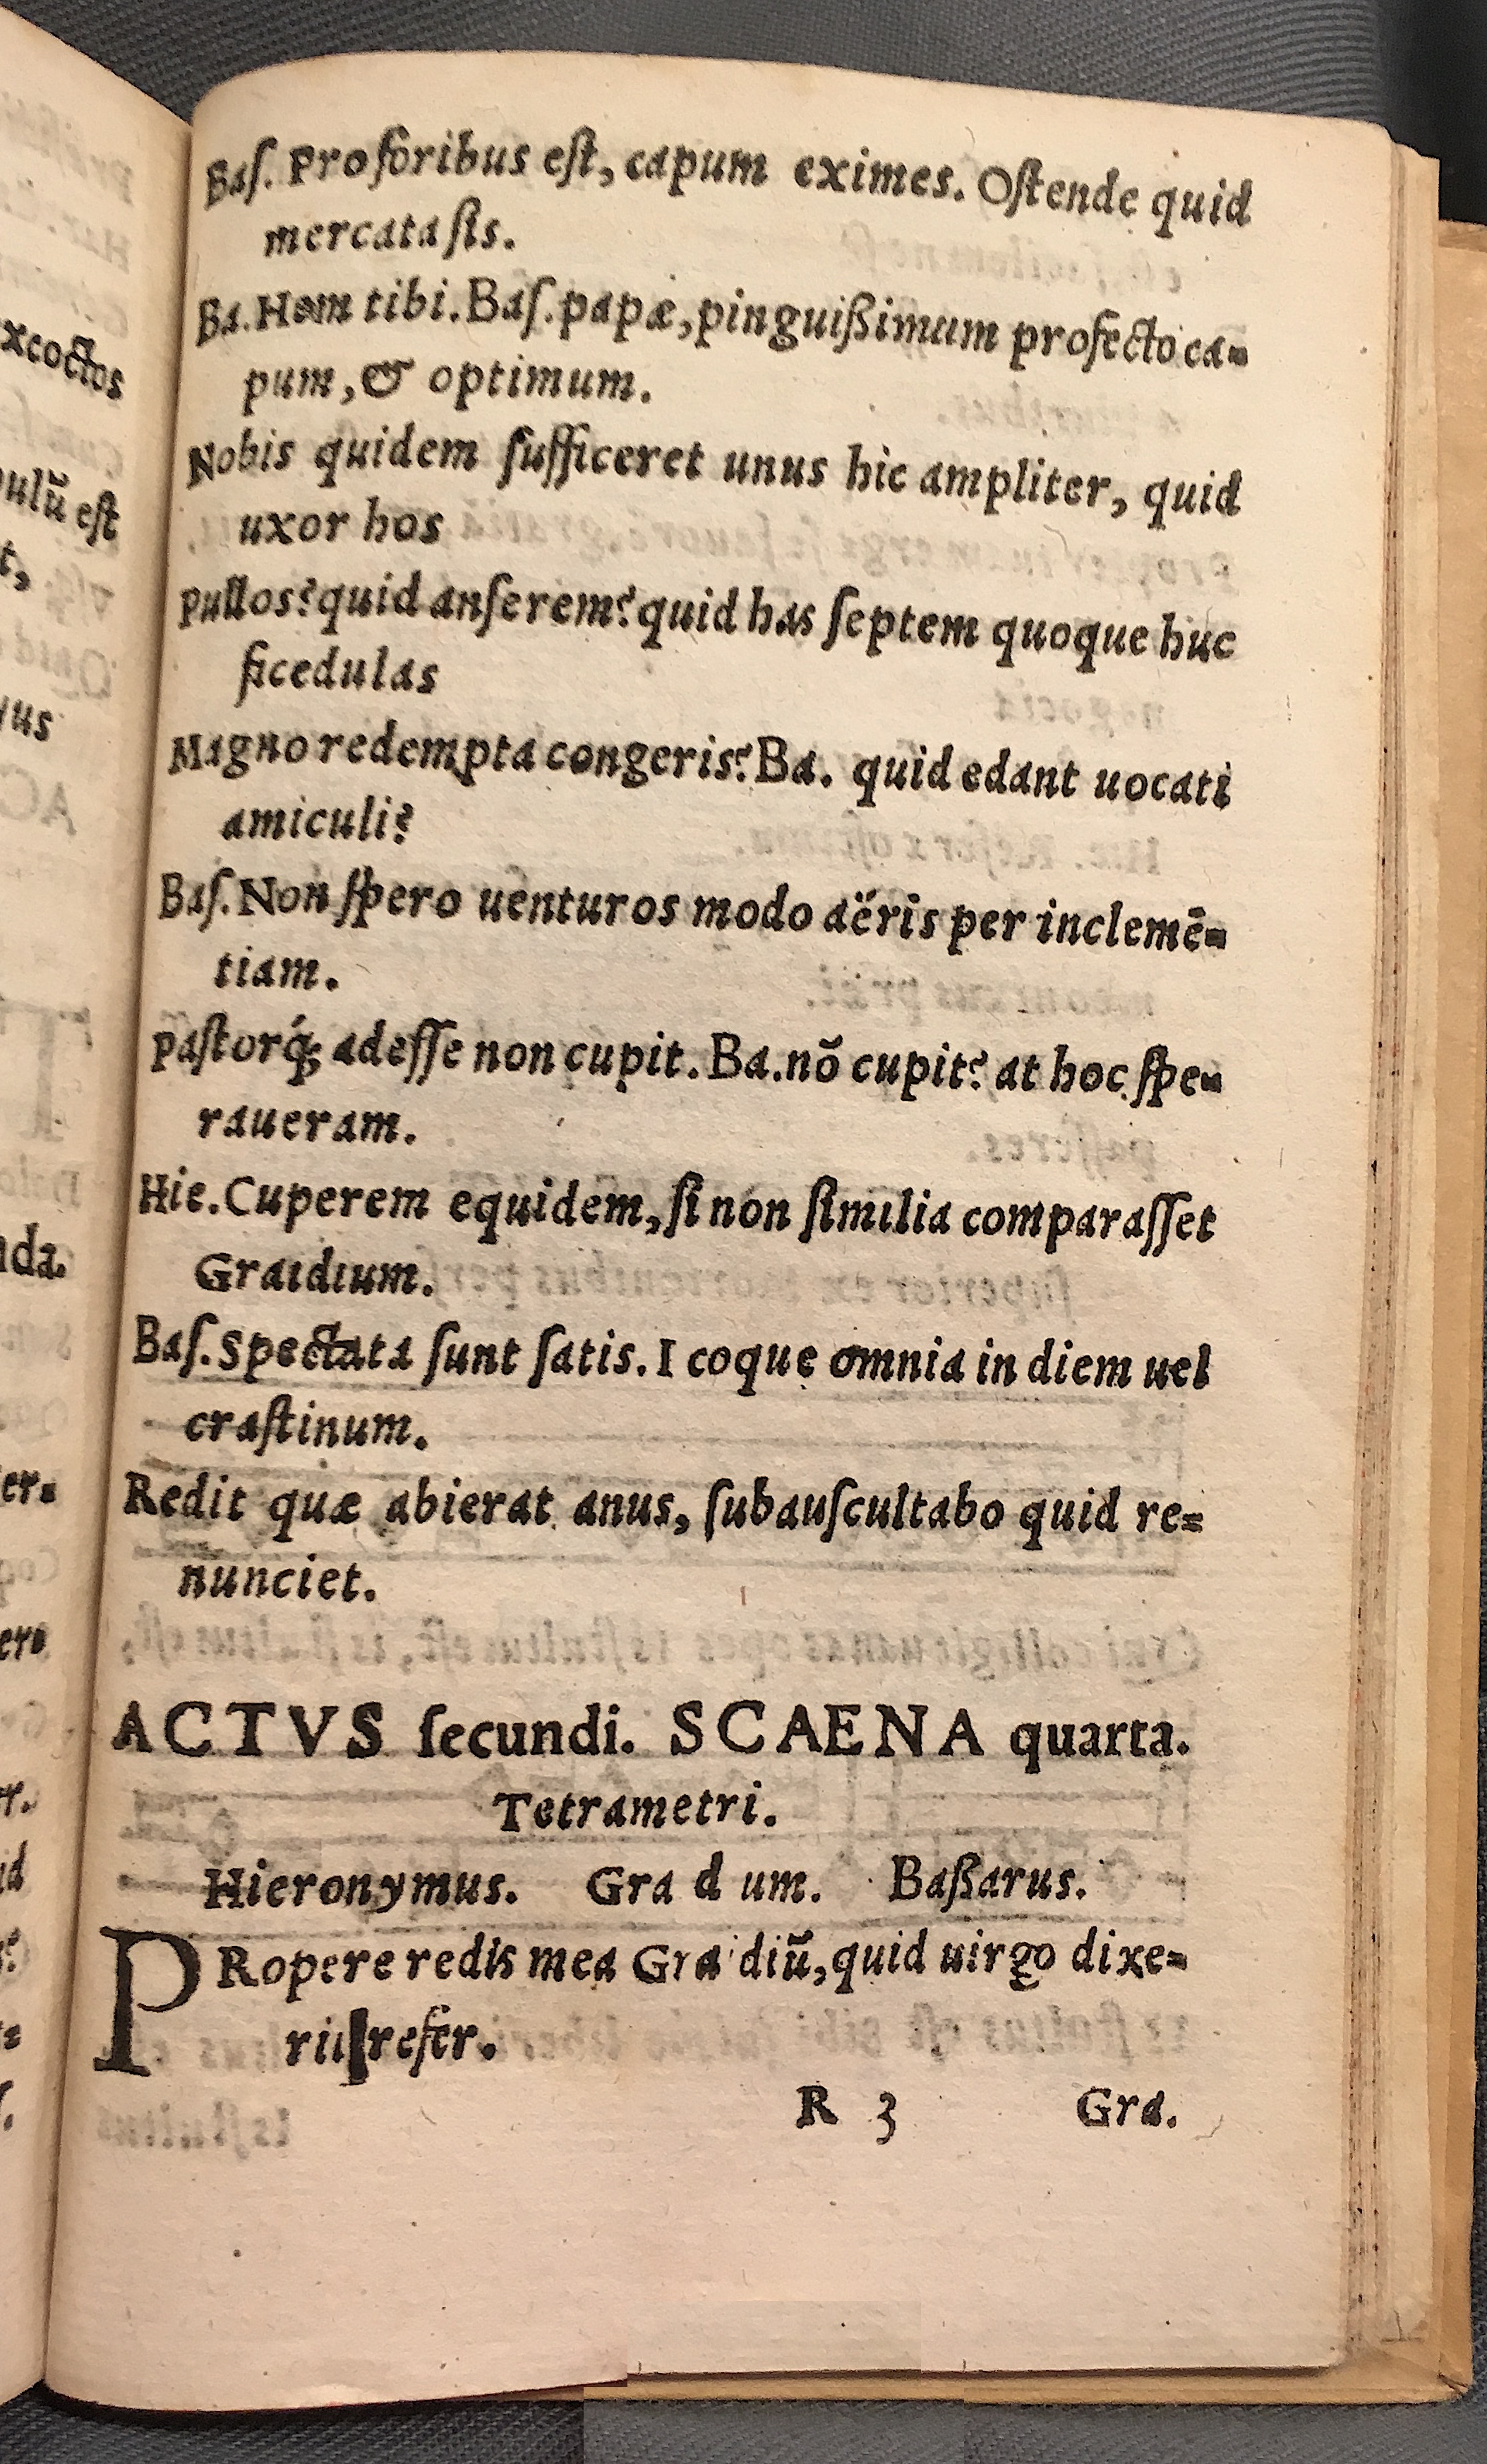 Baſ. Pro foribus eſt, capum eximes. Oſtende quid
mercata ſis.
Ba. Hem tibi. Baſ. papæ, pinguißimum profecto ca=
pum, & optimum.
Nobis quidem ſufficeret unus hic ampliter, quid
uxor hos
pullos? quid anſerem? quid has ſeptem quoque huc
ficedulas
Magno redempta congeris? Ba. quid edant uocati
amiculi?
Baſ. Non ſpero uenturos modo aëris per inclemē=
tiam.
Paſtorq́; adeſſe non cupit. Ba. nō cupit? at hoc ſpe=
raueram.
Hie. Cuperem equidem, ſi non ſimilia comparaſſet
Graidium.
Baſ. Spectata ſunt ſatis. I coque omnia in diem uel
craſtinum.
Redit quæ abierat anus, ſubauſcultabo quid re=
nunciet.
ACTVS ſecundi. SCAENA quarta.
Tetrametri.
Hieronymus. Gra d um. Baßarus.
PRopere redis mea Gra diū, quid uirgo dixe=
rit refer.
R 3 Gra.
xcoctos
pulū eſt
t,
yus
nda.
er=